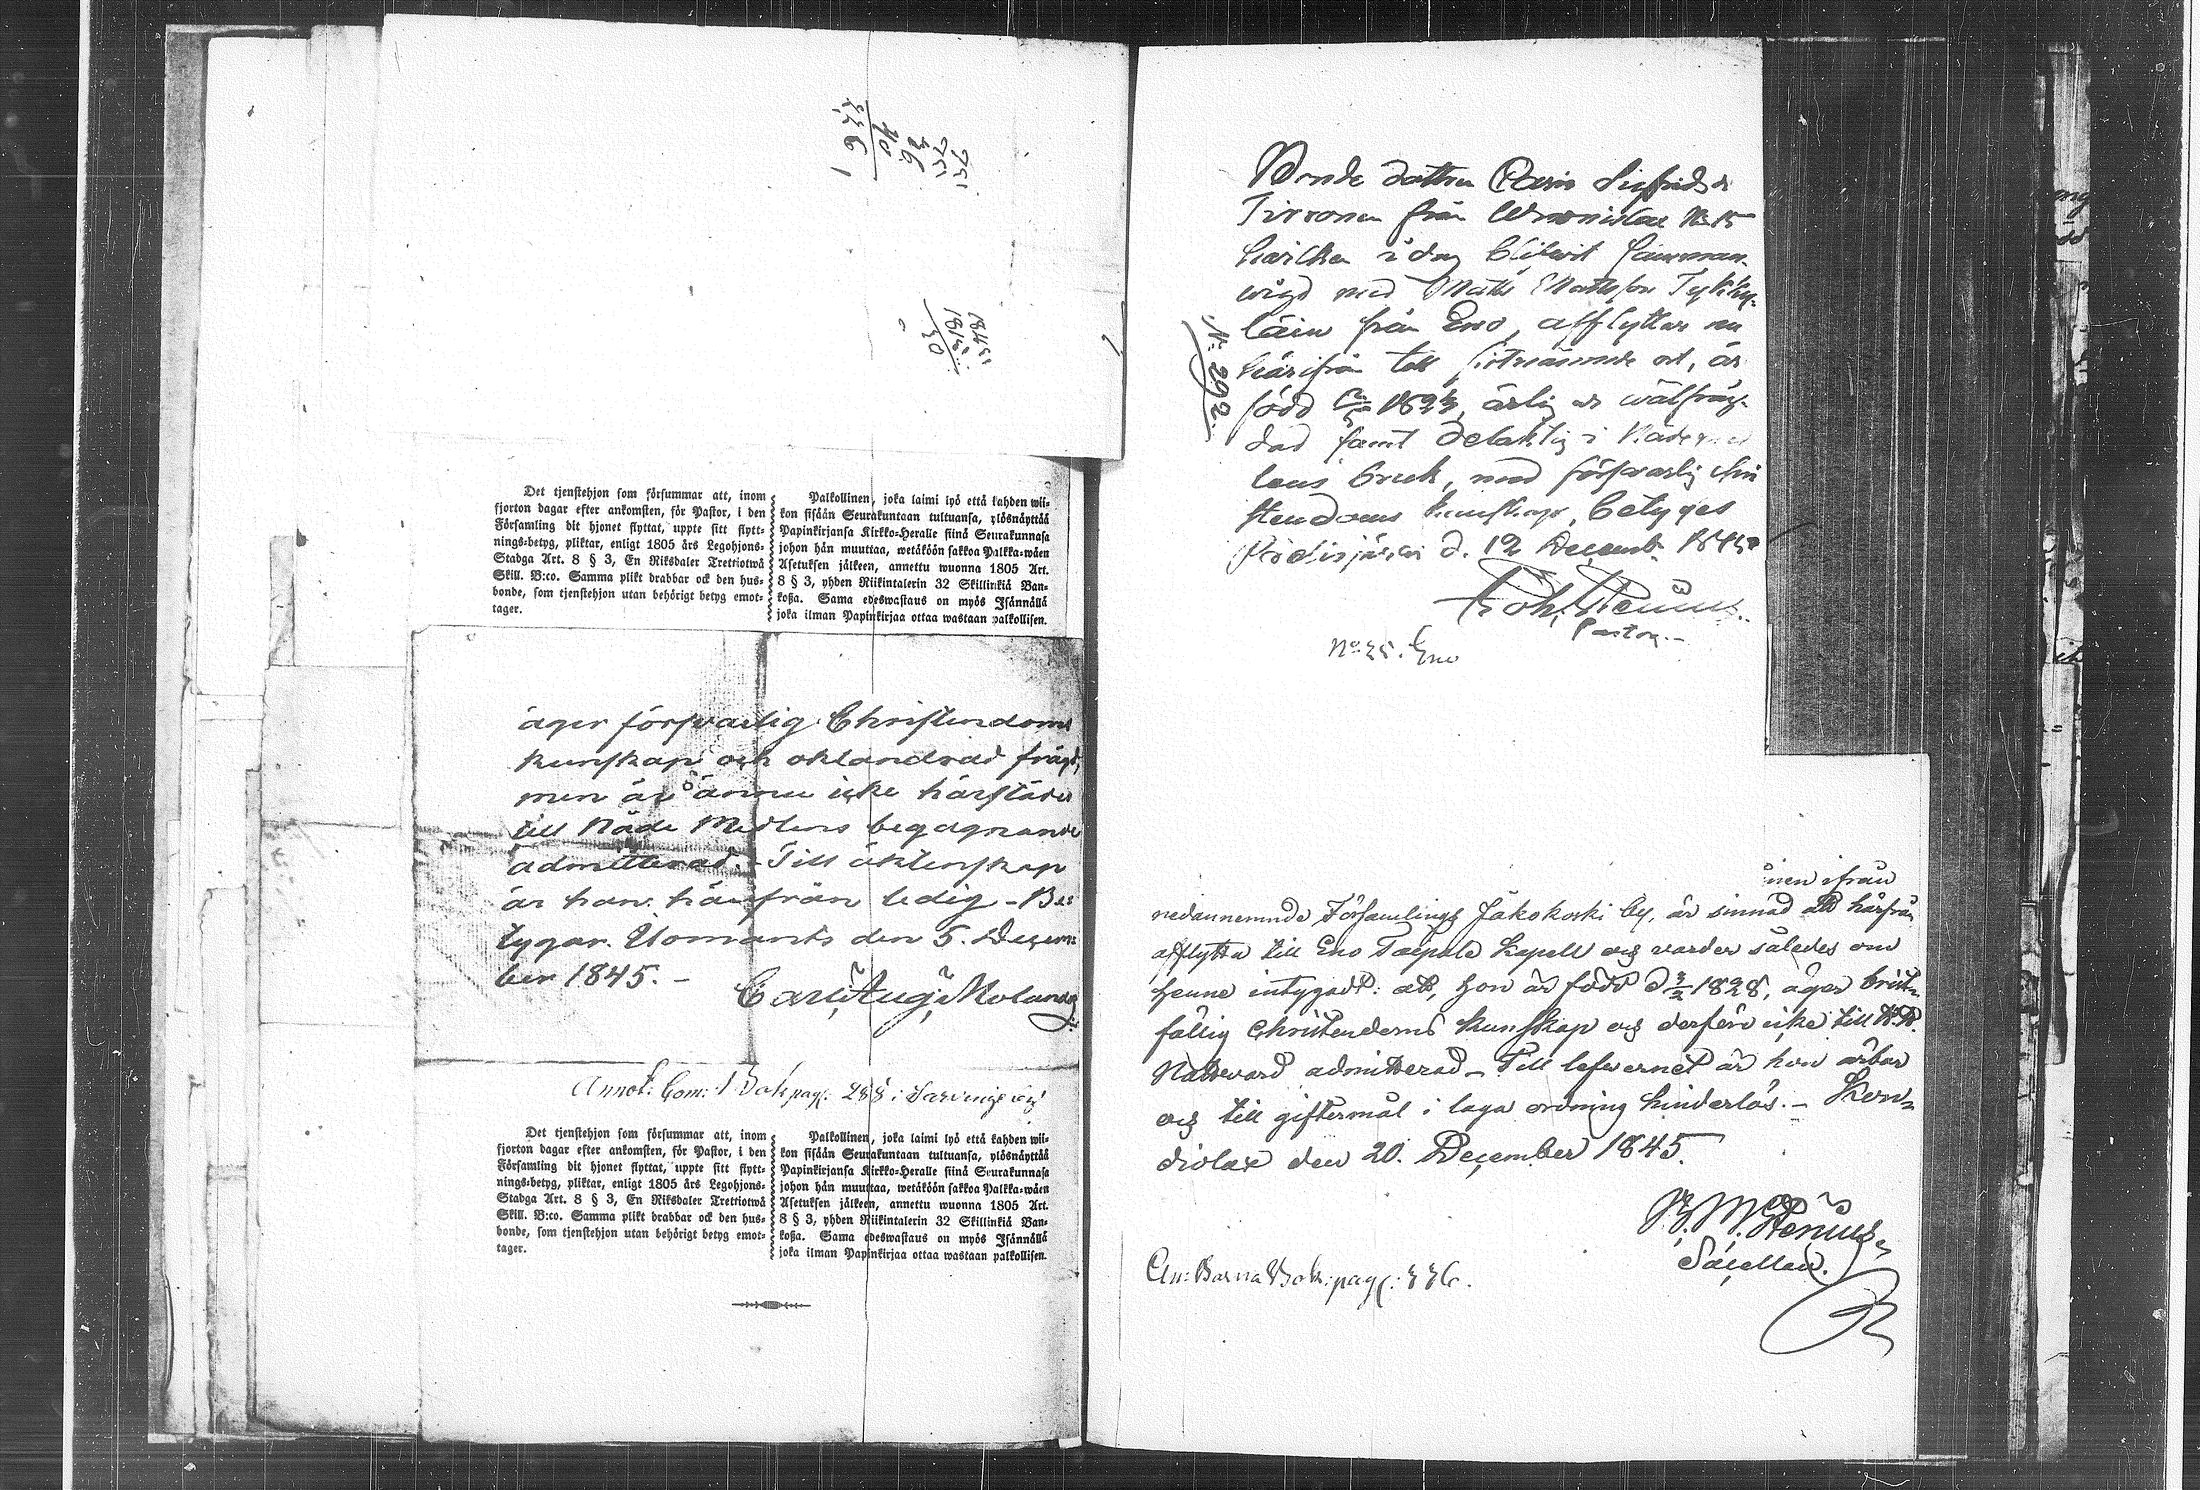 Det tjenstehjon som försummar att, inom
fjorton dagar efter ankomsten, för Pastor, i den
Församling dit hjonet flyttat, uppte sitt flytt-
nings-betyg, pliktar, enligt 1805 års Legohjons-
Stadga Art. 8 § 3, En Riksdaler Trettiotwå
Skill. B:co. Samma plikt drabbar ock den hus-
bonde, som tjenstehjon utan behörigt betyg emot-
tager.
Palkollinen, joka laimi lyö että kahden wii-
kon sisään Seurakuntaan tultuansa, ylösnäyttää
Papinkirjansa Kirkko-Heralle siinä Seurakunnasa
johon hän muuttaa, wetäköön sakkoa Palkka-wäen
Asetuksen jälkeen, annettu wuonna 1805 Art.
8 § 3, yhden Riikintalerin 32 Skillinkiä Ban-
koßa. Sama edeswastaus on myös Isännällä
joka ilman Papinkirjaa ottaa wastaan palkollisen.
äger försvarlig Christendoms
kunskap och oklandrad frägd,
men är ännu icke härstädes
till Nåde Medlens begagnande
admitterad. Till äktenskap
är han härifrån ledig - Be-
tygar. Ilomants den 5. Decem-
ber 1845. -
Carl Aug. Molander
Annot: Com: Bok pag. 288 i Sarvinge by
Det tjenstehjon som försummar att, inom
fjorton dagar efter ankomsten, för Pastor, i den
Församling dit hjonet flyttat, uppte sitt flytt-
nings-betyg, pliktar, enligt 1805 års Legohjons-
Stadga Art. 8 § 3, En Riksdaler Trettiotwå
Skill. B:co. Samma plikt drabbar ock den hus-
bonde, som tjenstehjon utan behörigt betyg emot-
tager.
Palkollinen, joka laimi lyö että kahden wii-
kon sisään Seurakuntaan tultuansa, ylösnäyttää
Papinkirjansa Kirkko-Heralle siinä Seurakunnasa
johon hän muuttaa, wetäköön sakkoa Palkka-wäen
Asetuksen jälkeen, annettu wuonna 1805 Art.
8 § 3, yhden Riikintalerin 32 Skillinkiä Ban-
koßa. Sama edeswastaus on myös Isännällä
joka ilman Papinkirjaa ottaa wastaan palkollisen.
Bonde dottren Carin Sigfrids dr
Tirronen från No 15
hvilken i dag blifwit samman-
wigd med Matts Mattsson Tykky-
läin från Eno, afflyttar nu
härifrån till sistnämnde ort, är
född ärlig och wälfräg-
dad samt delaktig i Nåderne
laus bruk, med förswarlig Chri
stendoms kunskap, betyges
Pielisjärvi d. 12 Decemb. 1845
Joh. Stenius
Pastor.-
N: 292.
No: 25. Eno
inen ifrån
nedannemnde Församlings Jakokoski by, är sinnad att härfrån
afflytta till Eno Taipale Kapell och varder således om
henne intygadt: att, hon är född d 3/2 1828, äger brist-
fällig Christendoms kunskap och derföre icke till H. H.
Nattvard admitterad - Till lefvernet är hon ärbar
och till giftermål i laga ordning hinderlös. - Kon-
diolax den 20. December 1845.
Stenius
Sacellan.
An: Barna Bok: pag: 336.